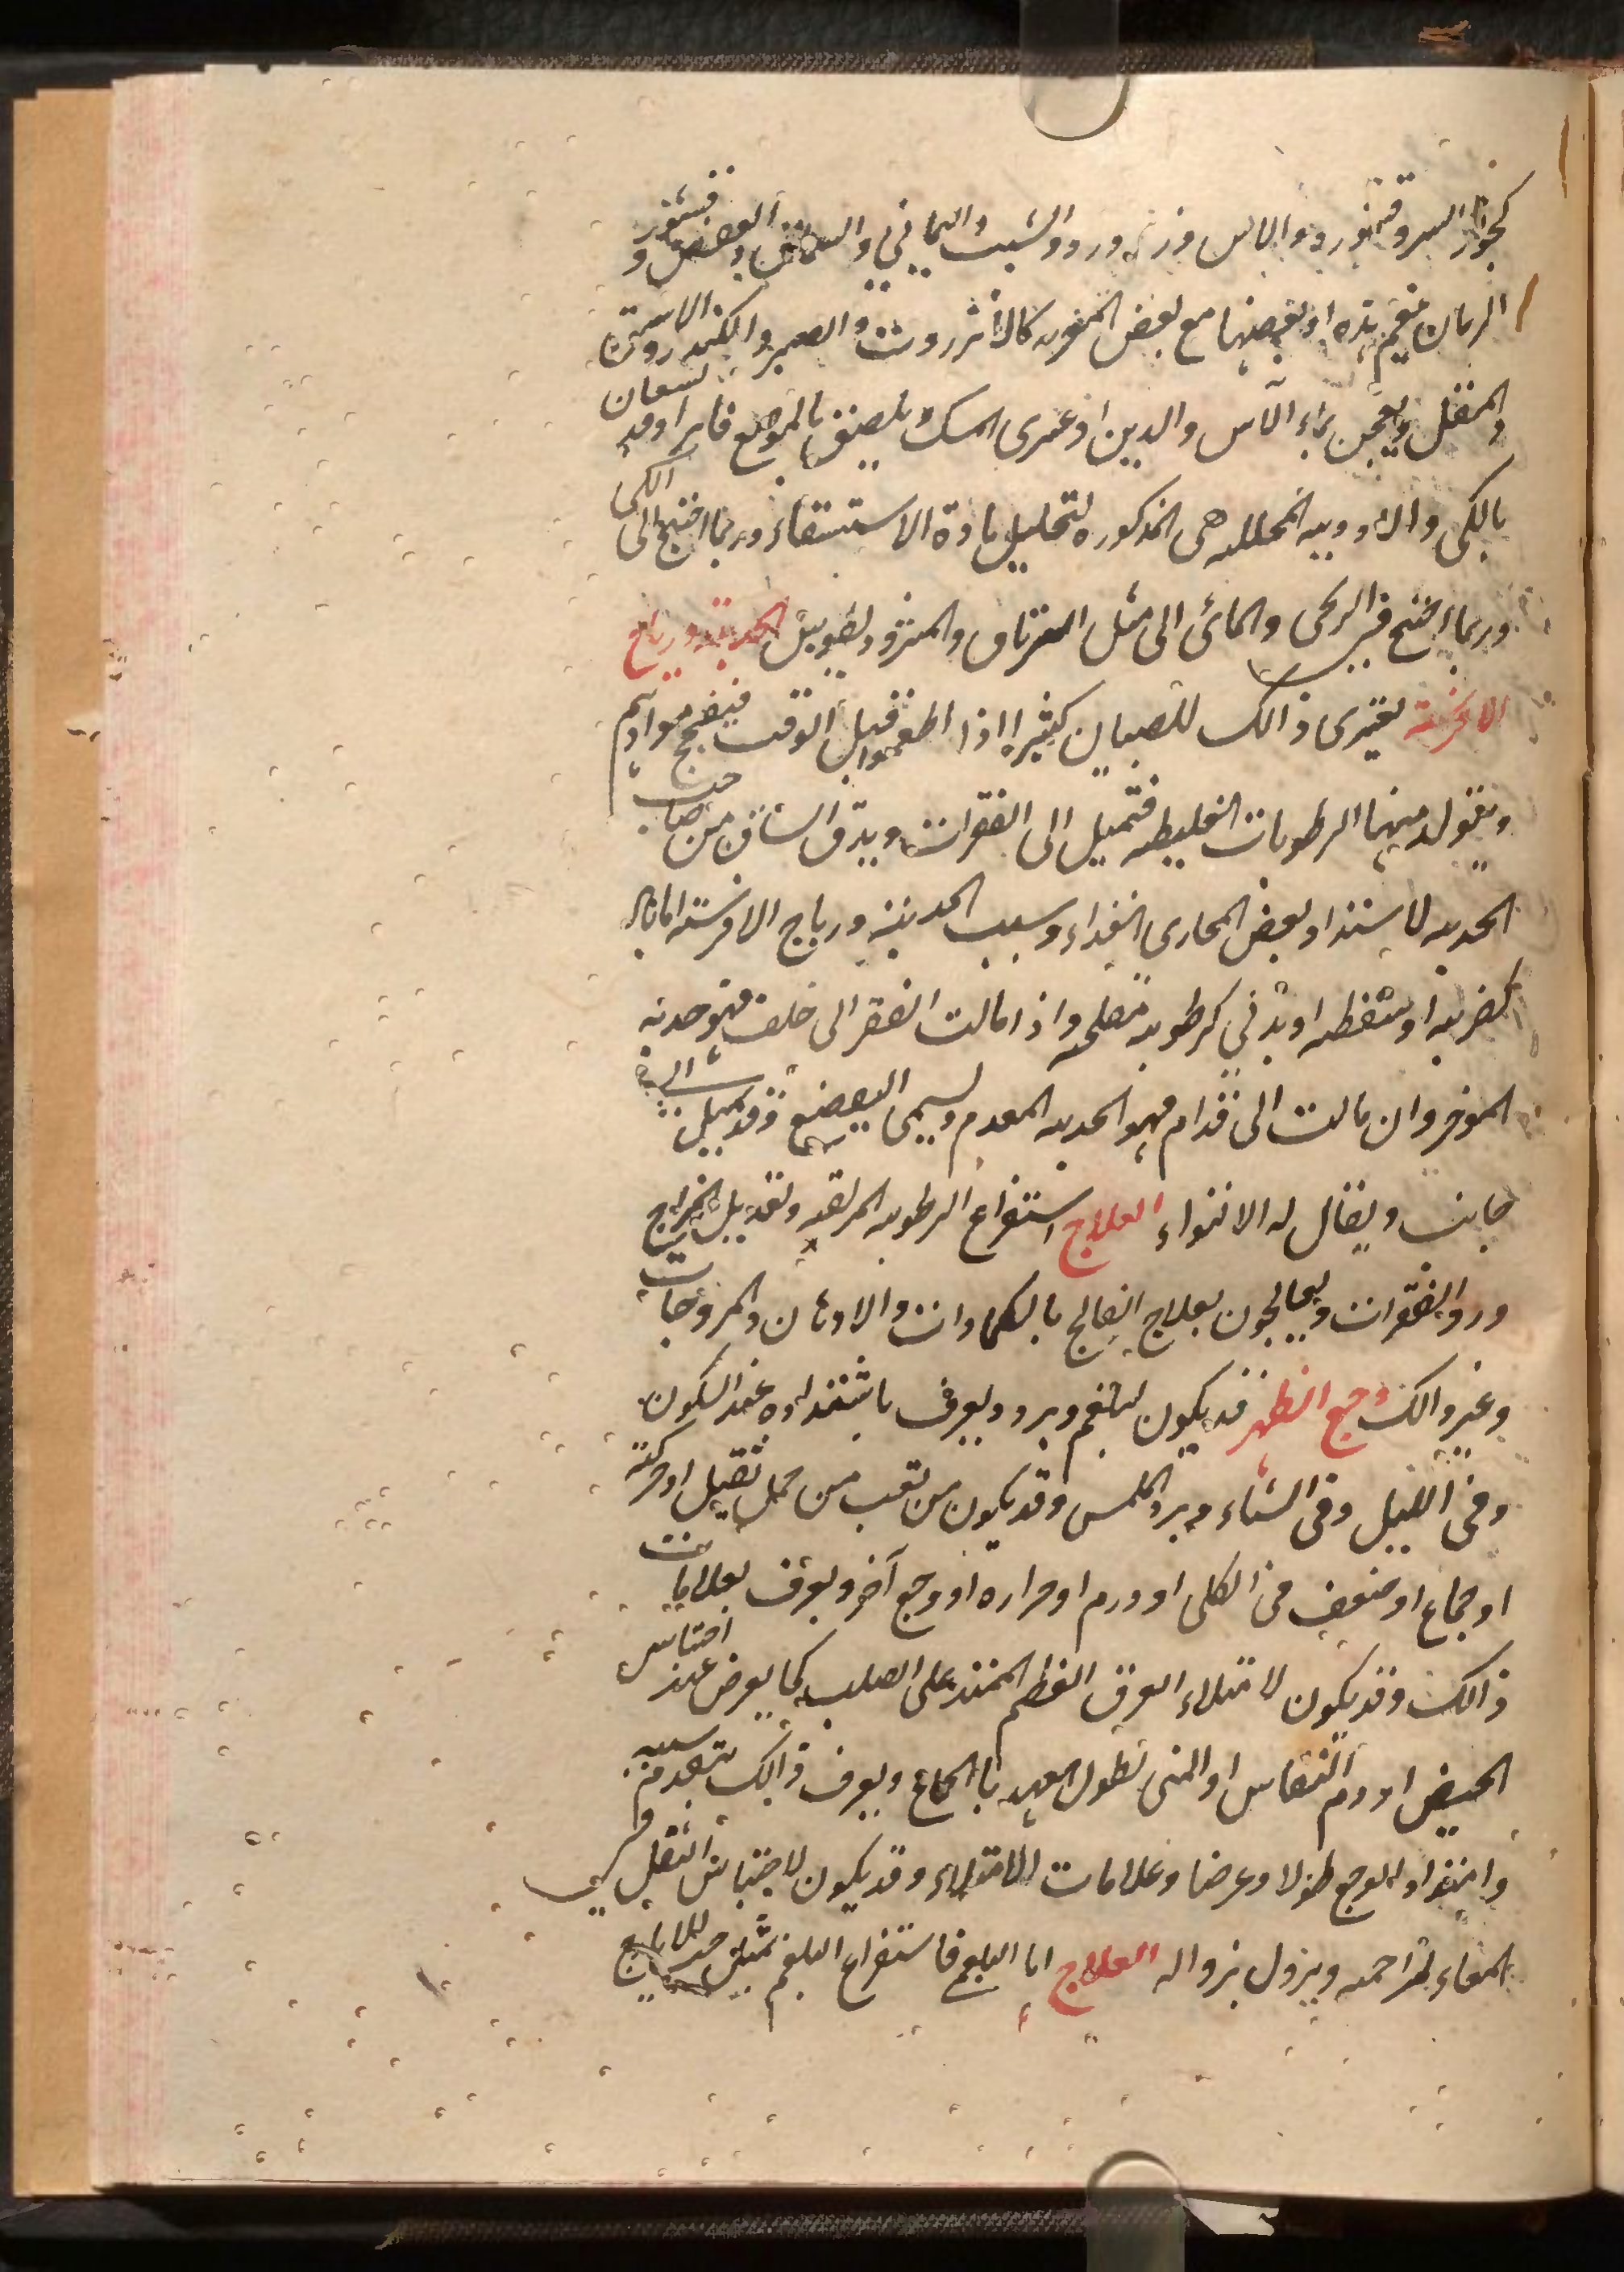 كجوز السرو قشوره والآس وزر ورد والشب اليماني والسماق والعفص وقشور
الرمان فيضم هذه او بعضها مع بعض المغريه كالانزروت والصبر والكندر والاشق
والمقل ويعجن بماء الآس والدبق او غرى السمك يلصق بالموضع فاترا وقد يستعان
بالكي والادويه المحلله هي المذكوره لتحليل مادة الاستسقاء وربما احتيج الى الكي
وربما احتيج في الريحي والمائي الى مثل الترياق والمثرود يطوس الحدبة ورياح
الافرسة يعتري ذالك للصبيان كثيرا اذا اطعموا قبل الوقت فيفجج موادهم
ويتولد منها الرطوبات الغليظه فتميل الى الفقرات ويدق الساق من صاحب
الحدبه لاستداد بعض المجارى الغذاء وسبب الحدبة ورياح الافرسته اما باد
كضربه او سقطه او بدني كرطوبة مفلجه واذا مالت الفقر الى خلف فهو حدبة
الموخر وان مالت الى قدام فهو الحدبه المقدم ويسمى التقصع وقد تميل الى
جانب ويقال له الالتواء العلاج استفراغ الرطوبه المزلقه وتعديل المزاج
ورد الفقرات ويعالجون بعلاج الفالج بالكمادات والادهان والمروخات
وغير ذالك وجع الظهر قد يكون لبلغم وبرد ويعرف باشتداده عند السكون
وفي الليل وفي الشتاء وبرد الملمس وقد يكون من تعب من حمل ثقيل او حركة
او جماع او ضعف في الكلى او ورم او حراره او وجع آخر ويعرف بعلامات
ذالك وقد يكون لامتلاء العرق العظيم الممتد على الصلب كما يعرض عند احتباس
الحيض او دم النفاس او المنى لطول العهد بالجماع ويعرف ذالك بتقدم سببه
وامتداد الوجع طولا وعرضا وعلامات الامتلاء وقد يكون لاحتباس الثقل في
المعاء لمزاحمه ويزول بزواله العلاج اما البلغم فاستفراغ البلغم بمثل حب الايارج